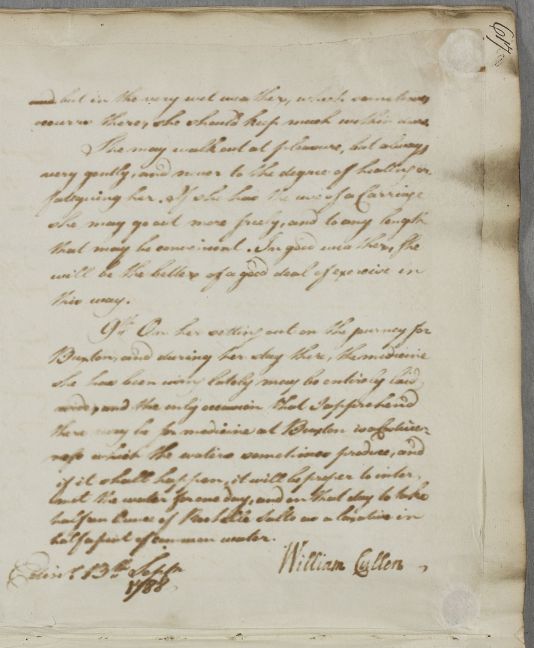 and but in the very wet weather, which sometimes
occurrs there, she should keep much within doors.
She may walk out at pleasure, but always
very gently, and never to the degree of heating or
fatiguing her. If she has the use of a Carriage
she may go out more freely, and to any length
that may be convenient. In good weather, she
will be the better of a good deal of exercise in
this way.
9th On her setting out on the journey for
Buxton, and during her stay there, the medicine
she has been using lately may be entirely laid
aside, and the only occasion that I apprehend
there may be for medicine at Buxton is a Costive-
ness which the waters sometimes produce, and
if it shall happen, it will be proper to inter,
mit the water for one day, and on that day to take
half an Ounce of Rochelle Salts as a laxative in
half a pint of common water.
William Cullen
Edinr. 13th Septr.
1788